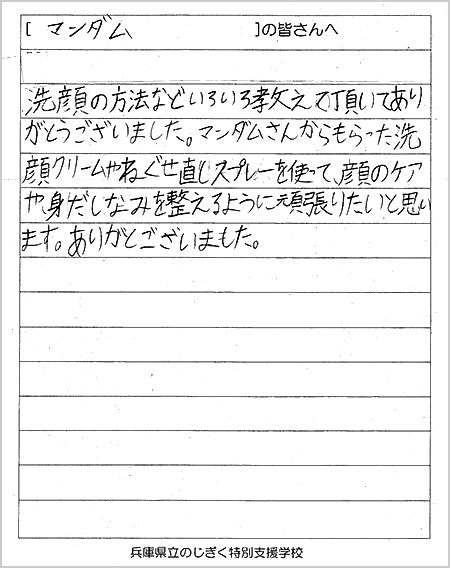 [ マンダム ]の皆さんへ
洗顔の方法などいろいろ教えて頂いてあり
がとうございました。マンダムさんからもらった洗
顔クリームやねぐせ直しスプレーを使って、顔のケア
や身だしなみを整えるように頑張りたいと思い
ます。ありがとございました。
兵庫県立のじぎく特別支援学校